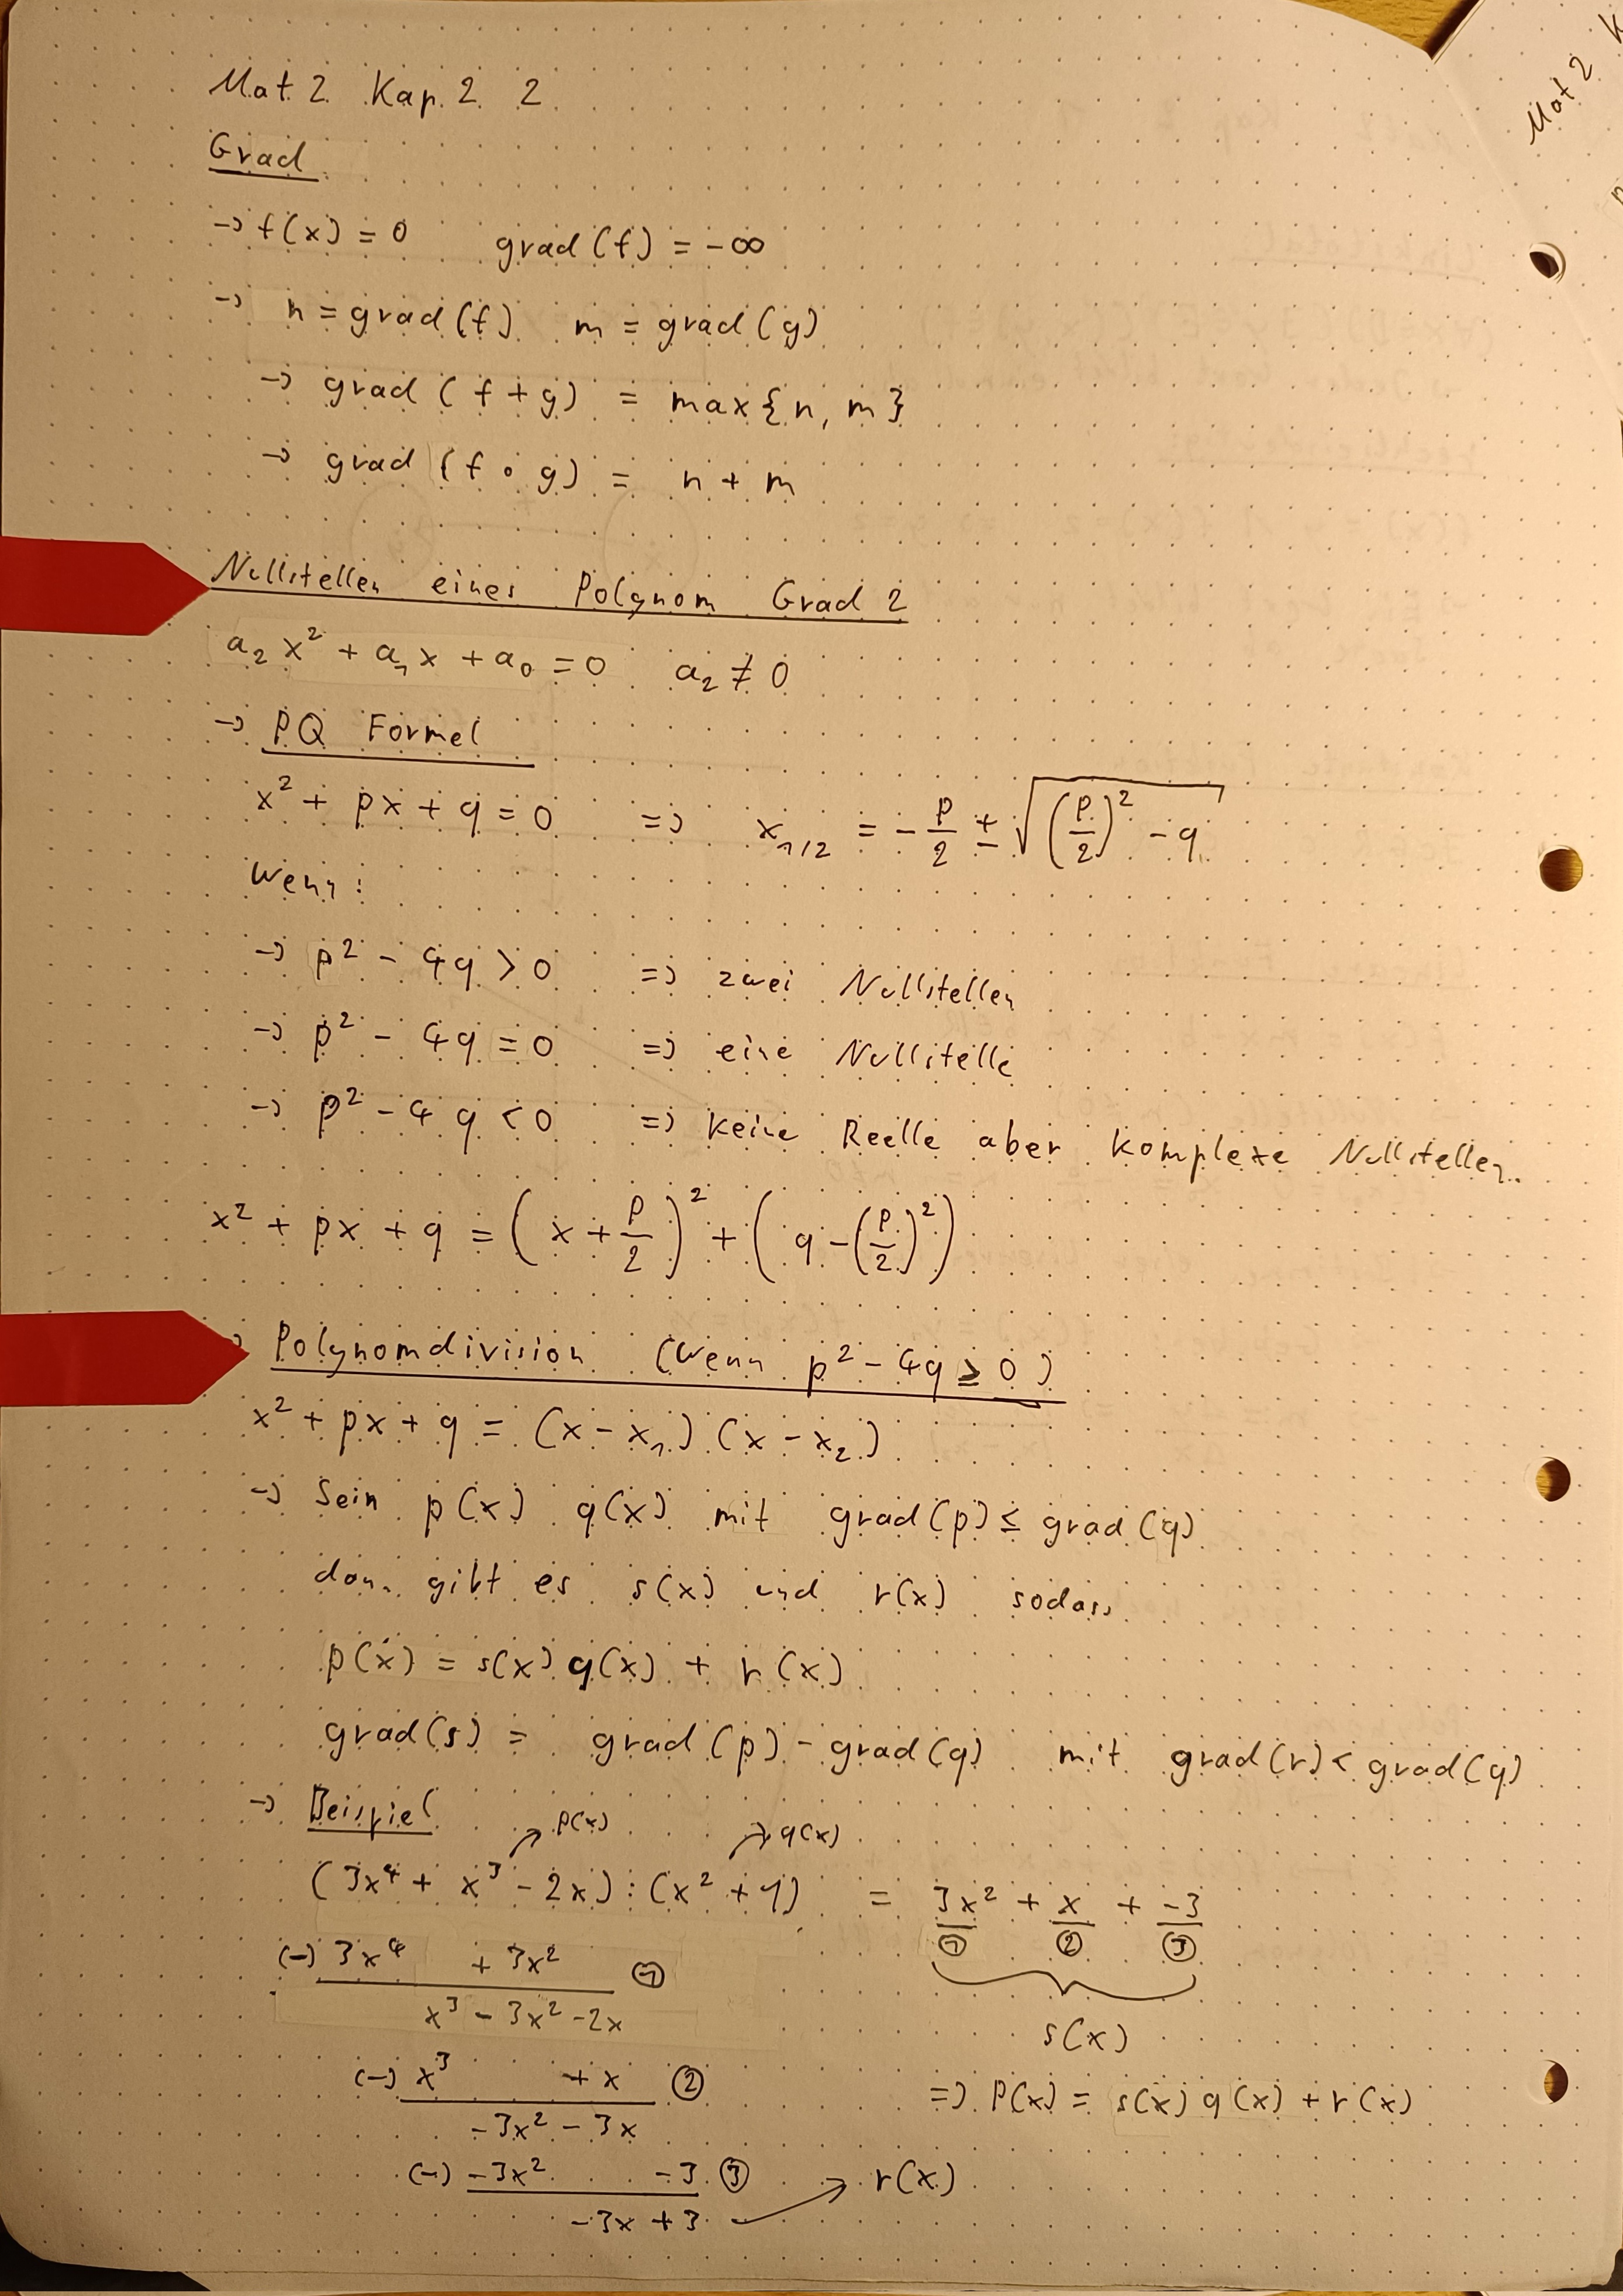 Mat 2 Kap. 2 2
Grad
→ f(x) = 0 grad(f) = -∞
→ n = grad(f) m = grad(g)
→ grad(f + g) = max{n, m}
→ grad(f ∘ g) = n + m
Nullstellen eines Polynom Grad 2
a₂x² + a₁x + a₀ = 0 a₂ ≠ 0
→ PQ Formel
x² + px + q = 0 => x₁/₂ = -p/2 ± √((p/2)² - q)
Wenn:
→ p² - 4q > 0 => zwei Nullstellen
→ p² - 4q = 0 => eine Nullstelle
→ p² - 4q < 0 => keine Reelle aber komplexe Nullstellen.
x² + px + q = (x + p/2)² + (q - (p/2)²)
→ Polynomdivision (Wenn p² - 4q ≥ 0)
x² + px + q = (x - x₁)(x - x₂)
→ Sein p(x) q(x) mit grad(p) ≤ grad(q)
dann gibt es s(x) und r(x) sodass
p(x) = s(x) q(x) + r(x)
grad(s) = grad(p) - grad(q) mit grad(r) < grad(q)
→ Beispiel
↗ p(x) ↗ q(x)
(3x⁴ + x³ - 2x) : (x² + 1) = 3x² + x + -3
① ② ③
(-) 3x⁴ + 3x² ①
x³ - 3x² - 2x
s(x)
(-) x³ + x ②
=> P(x) = s(x) q(x) + r(x)
-3x² - 3x
(-) -3x² - 3 ③
→ r(x)
-3x + 3
Mat 2 K